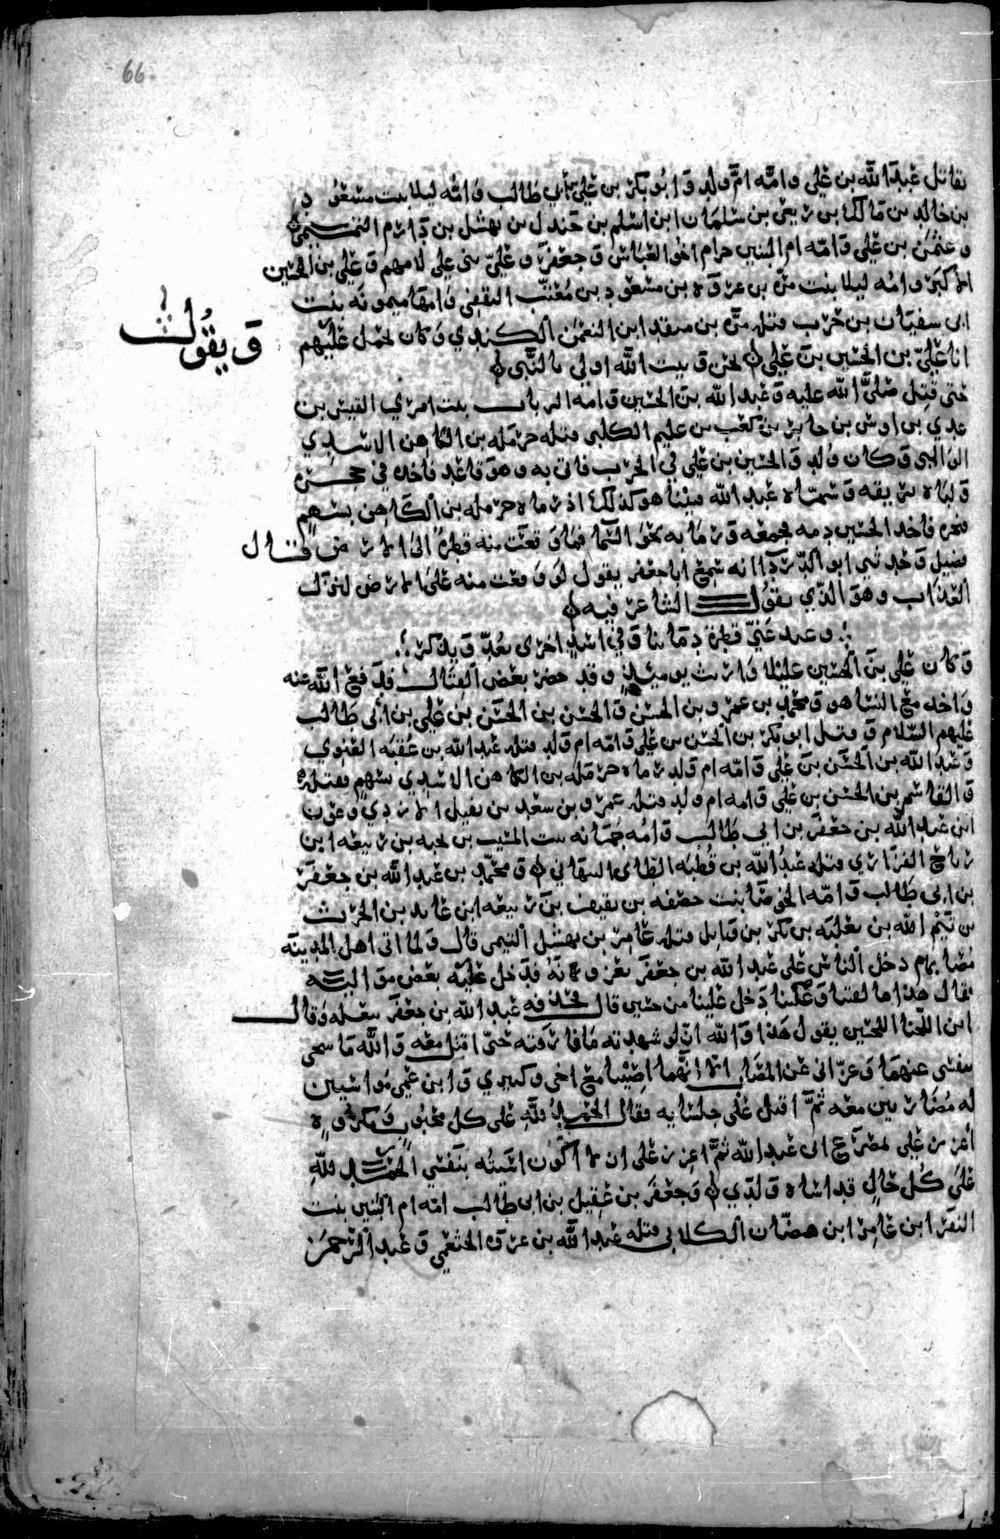 66
يقاتل عبد الله بن علي وامه ام ولد وابو بكر بن علي بن أبي طالب وامه ليلا بنت مسعود
بن خالد بن مالك بن ربيعي بن سلمان ابن اسلم بن جندل بن نهشل بن دارم التميمي
وعثمن بن علي وامه ام البنين حرام اخو العباس وجعفر وعلي بني علي لامهم وعلي بن الحسين
الاكبر وامه ليلا بنت مرة بن عروة بن مسعود بن معتب الثقفي وامها ميمونة بنت
ابي سفيان بن حرب قتله مرة بن منقذ ابن النعمن الكندي وكان يحمل عليهم
ويقول
انا علي بن الحسين بن علي نحن وبيت الله اولى بالنبي
حتى قتل صلى الله عليه وعبد الله بن الحسين وامه الرباب بنت امرئ القيس بن
عدي بن اوس بن جابر بن كعب بن عليم الكلبي قتله حرمله بن الكاهن الاسدي
الوالبي وكان ولد والحسين بن علي في الحرب فاتي به وهو قاعد فاخذه في حجره
ولباه بريقه وسماه عبد الله فبينا هو كذلك اذ رماه حرمله بن الكاهن بسهم
فنحره فاخذ الحسين دمه فجمعه ورما به نحو السما فما وقعت منه قطرة الى الارض قال
فضيل وحدثني ابو الورد انه سمع ابا جعفر يقول لو وقعت منه على الارض لنزل
العذاب وهو الذي يقول الشاعر فيه
وعند غني قطرة دمائنا وفي اسد اخرى تعد وتذكر
وكان علي بن الحسين عليلا وارتث يوميذ وقد حضر بعض القتال فدفع الله عنه
واخذ مع النسا هو ومحمد بن عمرو بن الحسن والحسن بن الحسن بن علي بن ابي طالب
عليهم السلام وقتل ابو بكر بن الحسن بن علي وامه ام ولد قتله عبد الله بن عقبه الغنوي
وعبد الله بن الحسن بن علي وامه ام ولد رماه حرمله بن الكاهن الاسدي بسهم فقتله
والقاسم بن الحسن بن علي وامه ام ولد قتله عمرو بن سعد بن نفيل الازدي وعون
ابن عبد الله بن جعفر بن ابي طالب وامه جمانه بنت المسيب بن نجبه بن ربيعه ابن
رباح الفزاري قتله عبد الله بن قطبه الطاي النبهاني ومحمد بن عبد الله بن جعفر
بن ابي طالب وامه الخوصا بنت حصفه بن ثقيف بن ربيعه ابن عايد بن الحرث
بن تيم الله بن ثعلبه بن بكر بن وايل قتله عامر بن نهشل التيمي قال ولما اتى اهل المدينه
مصابهم دخل الناس على عبد الله بن جعفر يعزونه فدخل عليه بعض مواليه
فقال هذا ما لقينا ودخل علينا من حسين قال فحذفه عبد الله بن جعفر بنعله وقال
ابن اللخنا اللحسين يقول هذا والله ان لو شهدته ما فارقته حتى اقتل معه والله ما سخى
بنفسي عنهما وعزاني عن المصاب الا انهما اصيبا مع اخي وكبيري وابن عمي مواسيين
له مضاربين معه ثم اقبل على جلسايه فقال الحمد لله على كل محبوب ومكروه
اعزز علي بمصرع ابي عبد الله ثم اعزز على ان لا اكون اسيته بنفسي الحمد لله
على كل حال قد اساه ولدي وجعفر بن عقيل بن ابي طالب امه ام البنين بنت
النفر ابن عامر ابن هصان الكلابي قتله عبد الله بن عروة الخثعمي وعبد الرحمن